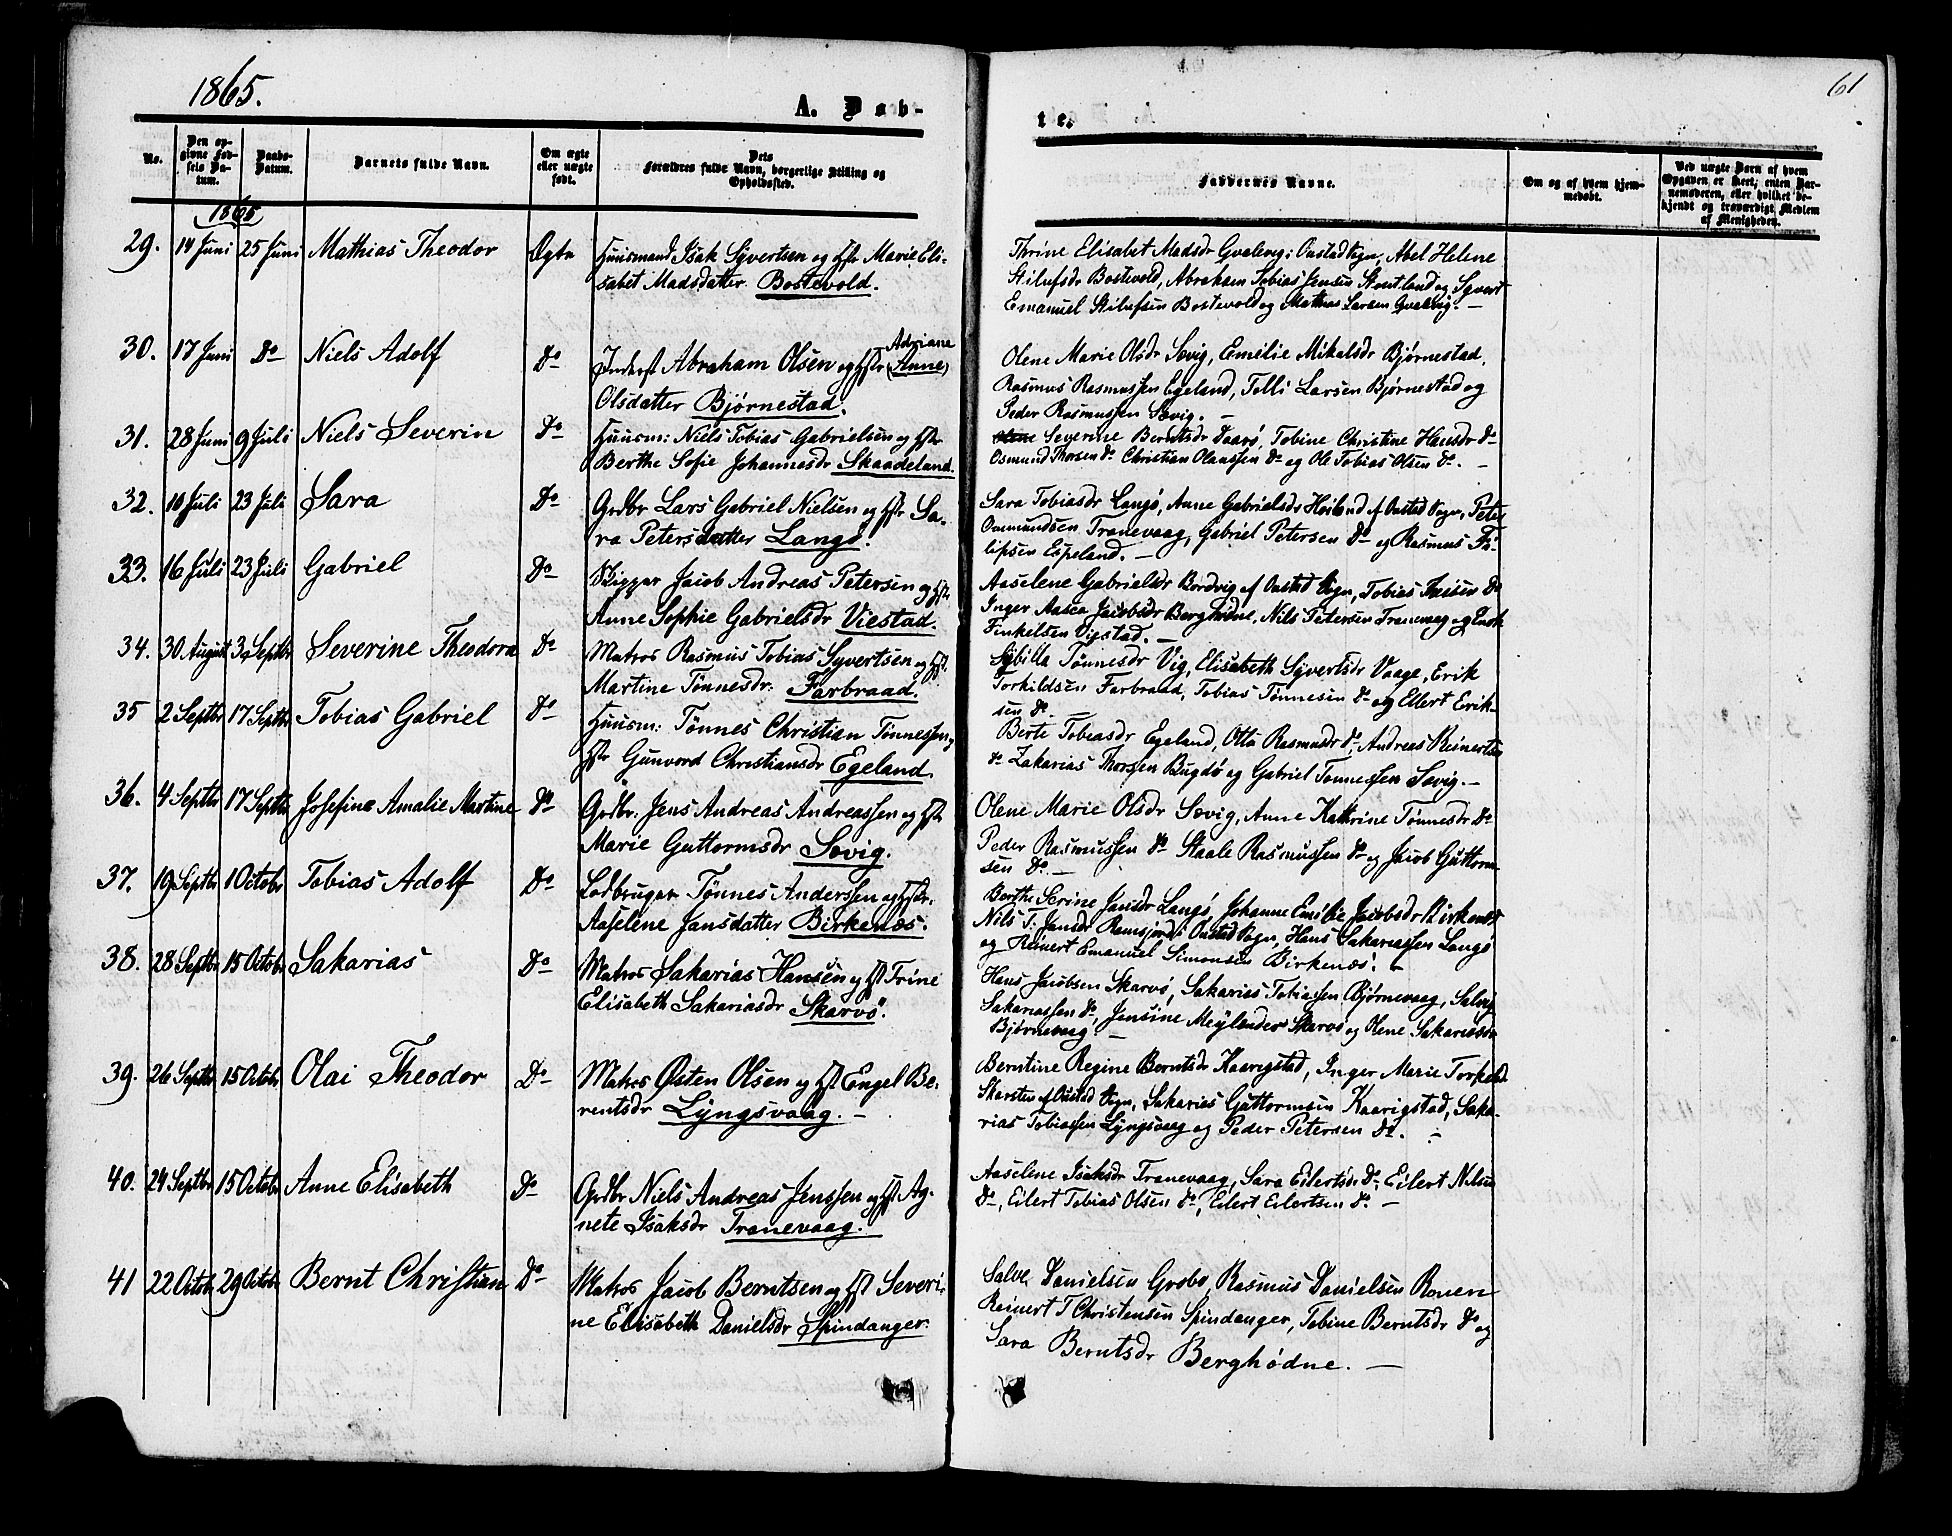 1865.
61
A. Døb-
te.
No.
Den op-
givne Fød-
sels Da-
tum.
Daabs-
Datum.
Barnets fulde Navn.
Om ægte
eller uægte
født.
Dets
Forældres fulde Navn, borgerlige Stilling og
Opholdssted.
Faddernes Navne.
Om og af hvem hjem-
medøbt.
Ved uægte Børn af hvem
Opgaven er skeet, enten Bar-
nemoderen, eller hvilket be-
kjendt og troværdigt Medlem
af Menigheden.
1865
29. 14 Juni 25 Juni Mathias Theodor Ægte Huusmand Isak Syvertsen og Hstr Marie Eli-
sabet Madsdatter Bostevold.
Thrine Elisabet Madsdr Gvalevig i Oustad Sogn, Abel Helene
Stilufsdr Bostevold, Abraham Tobias Jensen Stoutland og Syvert
Emanuel Stilufsen Bostevold og Mathias Larsen Gvalevig. –
30. 17 Juni Do Niels Adolf Do Inderst Abraham Olsen og Hstr (Anne) Adriane
Olsdatter Bjørnestad.
Olene Marie Olsdr Sævig, Emelie Mikalsdr Bjørnestad,
Rasmus Rasmussen Egeland, Tolli Larsen Bjørnestad og
Peder Rasmussen Sævig. –
31. 28 Juni 9 Juli Niels Severin Do Huusm: Niels Tobias Gabrielsen og Hstr
Berthe Sofie Johannesdr Skaadeland.
Severine Berntsdr Daarø, Tobine Christine Hansdr Do
Osmund Thorsen Do Christian Olaussen Do og Ole Tobias Olsen Do. –
32. 10 Juli 23 Juli Sara Do Grdbr Lars Gabriel Nielsen og Hstr Sa-
ra Petersdatter Langø.
Sara Tobiasdr Langø, Anne Gabrielsdr Høiland af Oustad Sogn, Peter
Osmundsen Tranevaag, Gabriel Petersen Do og Rasmus Fi-
lipsen Espeland. –
33. 16 Juli 23 Juli Gabriel Do Skipper Jacob Andreas Petersen og Hstr
Anne Sophie Gabrielsdr Viestad.
Aaselene Gabrielsdr Bordvig af Oustad Sogn, Tobias Do
Inger Aasea Jacobsdr Berghødne, Nils Petersen Tranevaag og
Finkelsen Vigstad. –
34. 30 August 3 Septbr Severine Theodora Do Matros Rasmus Tobias Syvertsen og Hst.
Martine Tønnesdr: Farbraad.
Sybilla Tønnesdr Vig, Elisabeth Syvertsdr Vaage, Erik
Torkildsen Farbraad, Tobias Tønnesen Do og Ellert Erik-
sen Do. –
35 2 Septbr 17 Septbr Tobias Gabriel Do Huusm: Tønnes Christian Tønnessen og
Hstr Gunvord Christiansdr Egeland.
Berte Tobiasdr Egeland, Otto Rasmusdr Do, Andreas Reinertsen
Do Zakarias Thorsen Bugdø og Gabriel Tønnessen Sævig. –
36. 4 Septbr 17 Septbr Josefine Amalie Martine Do Grdbr. Jens Andreas Andreassen og Hstr
Marie Guttormsdr Sævig.
Olene Marie Olsdr Sævig, Anne Kathrine Tønnesdr Do
Peder Rasmussen Do Staale Rasmussen Do og Jacob Guttorm-
sen Do. –
37. 19 Septbr 1 Octobr Tobias Adolf Do Lodbruger Tønnes Anderssen og Hstr.
Aaselene Jansdatter Birkenæs.
Berthe Serine Jansdr Langø, Johanne Emelie Jacobsdr Birkenæs
Nils T: Jansdr i Oustad Sogn, Hans Sakariassen Langø
og Reinert Emanuel Simonsen Birkenæs. –
38. 28 Septbr 15 Octobr Sakarias Do Matros Sakarias Hansen og Hst Trine
Elisabeth Sakariasdr Skarvø.
Hans Jacobsen Skarvø, Sakarias Tobiassen Bjørnevaag, Salve
Sakariassen Do, Jensine Meylænder Skarvø og Olene Sakariasdr
Bjørnevaag. –
39. 26 Septbr 15 Octobr Olai Theodor Do Matros Østen Olsen og Hst Engel Be-
rentsdr Lyngsvaag. –
Berntine Regine Berntsdr Kaarigstad, Inger Marie Torkelsd
Skarsten af Oustad Sogn, Sakarias Guttormsen Kaarigstad, Saka-
rias Tobiassen Lyngsvaag og Peder Petersen Do. –
40. 24 Septbr 15 Octobr Anne Elisabeth Do Grdbr Niels Andreas Jenssen og Hst Ag-
nete Isaksdr Tranevaag.
Aaselene Isaksdr Tranevaag, Sara Eilertsdr Do, Eilert Nilsen
Do, Eilert Tobias Olsen Do, Eilert Eilertsen Do. –
41 22 Octobr 29 Octobr Bernt Christian Do Matros Jacob Berntsen og Hst Severi-
ne Elisabeth Danielsdr Spindanger.
Salve Danielsen Grobo, Rasmus Danielsen Ronen
Reinert T Christensen Spindanger, Tobine Berntsdr Do og
Sara Berntsdr Berghødne. –